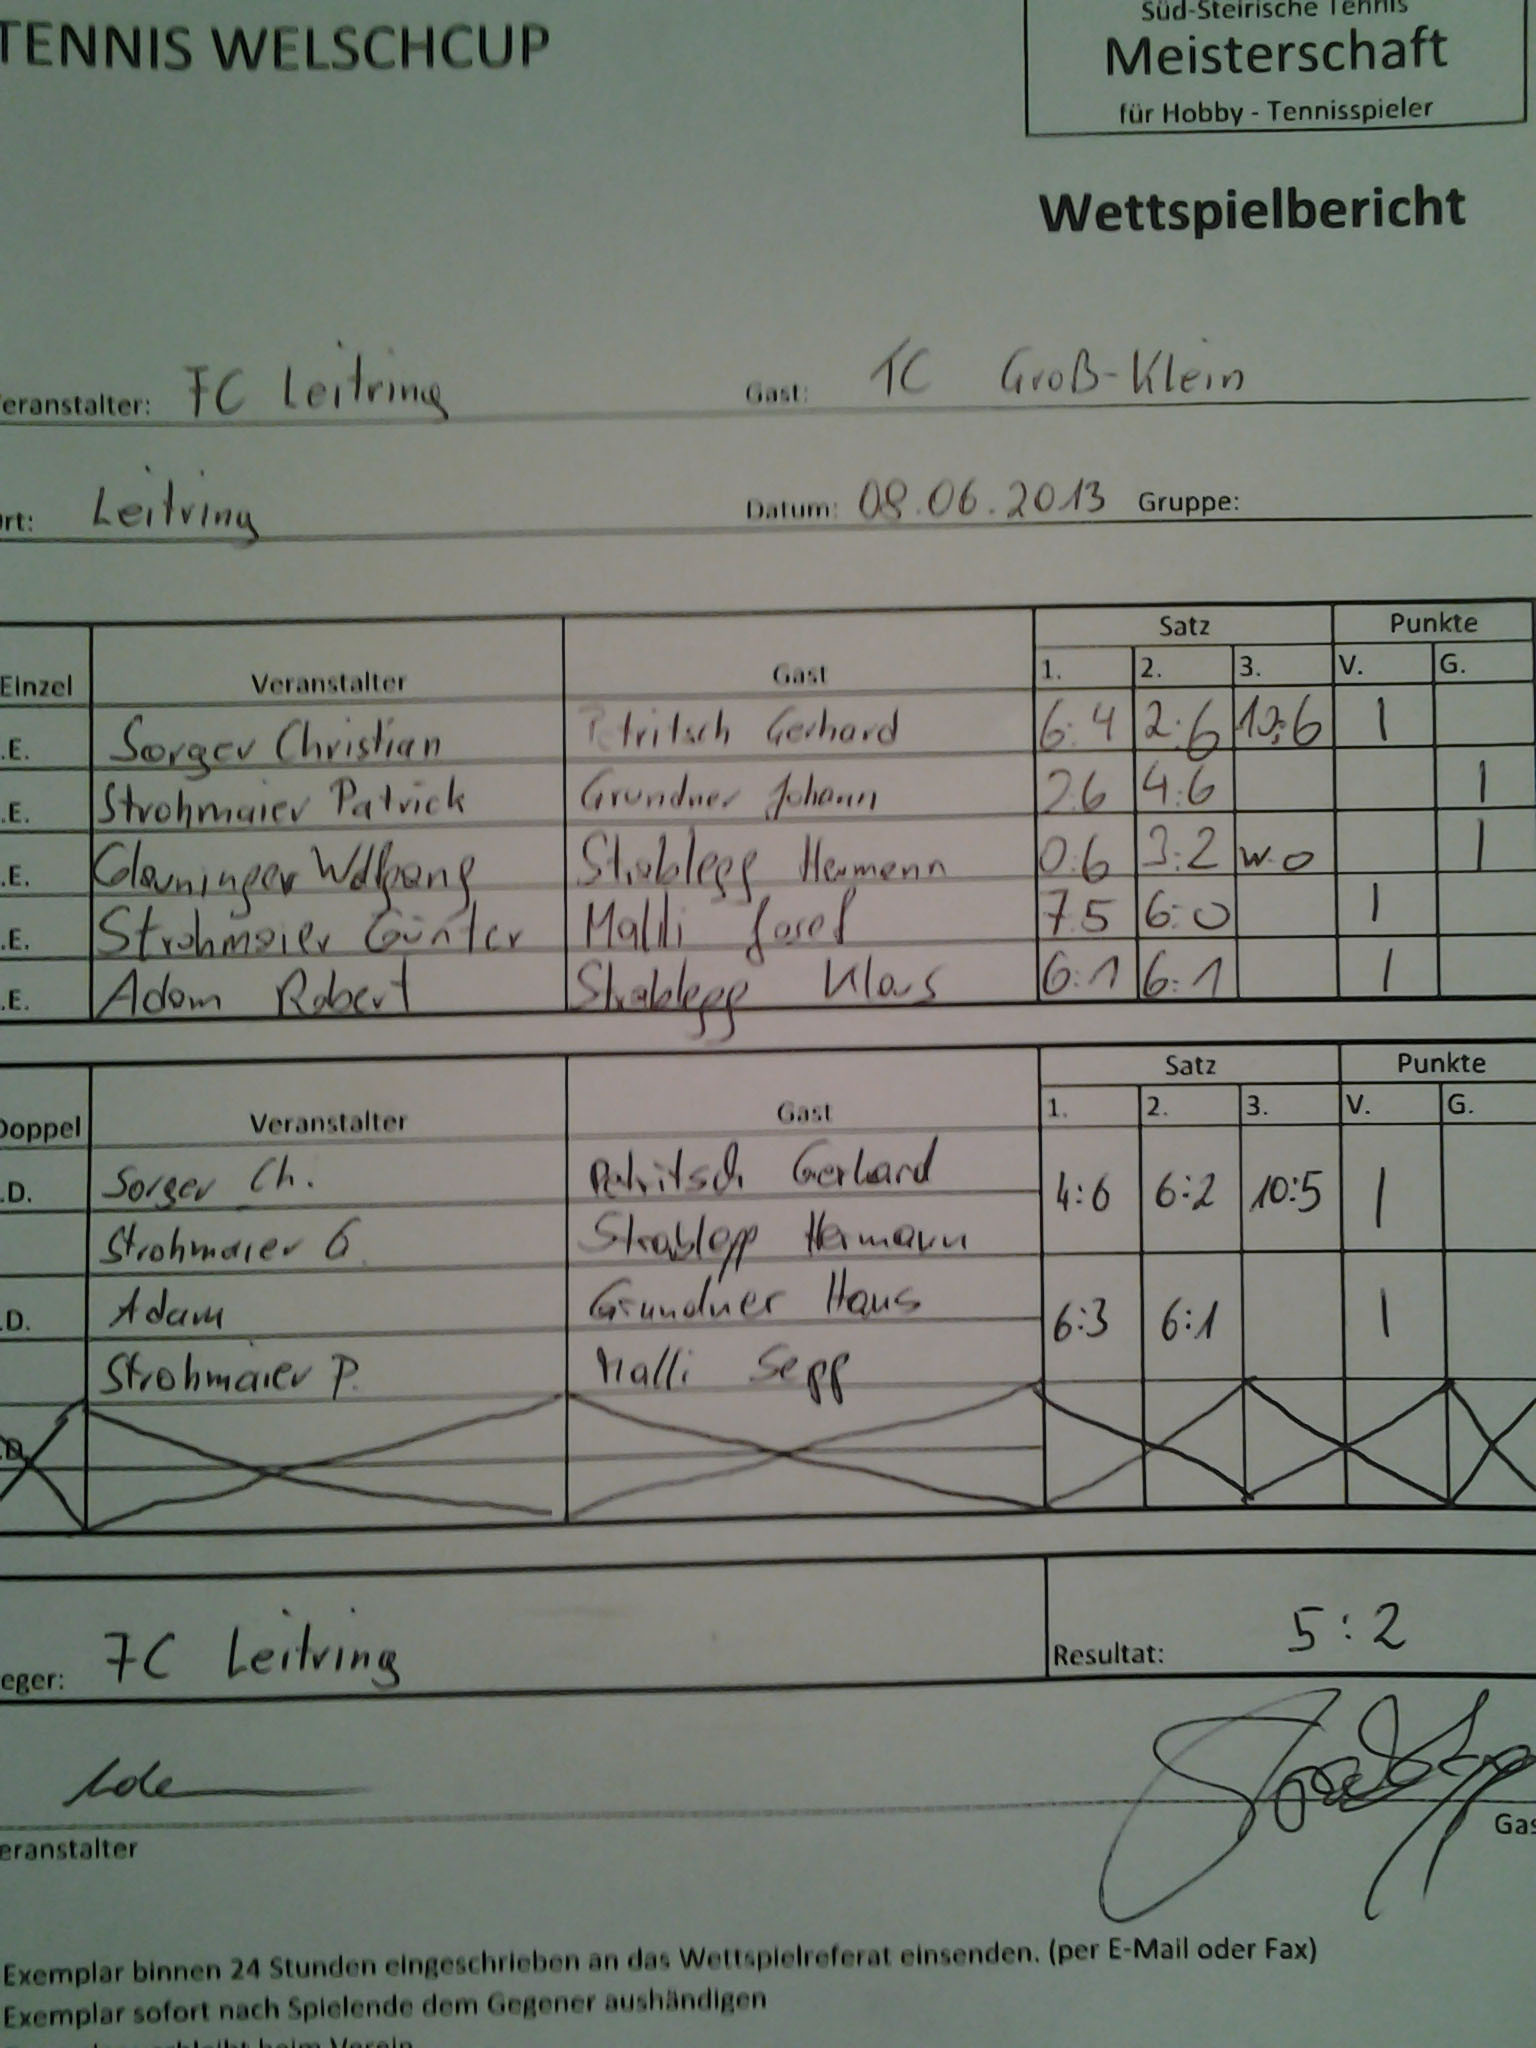 TENNIS WELSCHCUP
Süd-Steirische Tennis
Meisterschaft
für Hobby - Tennisspieler
Wettspielbericht
eranstalter: FC Leitring Gast: TC Groß-Klein
rt: Leitring Datum: 08.06.2013 Gruppe:
Satz Punkte
Einzel Veranstalter Gast 1. 2. 3. V. G.
.E. Sorger Christian Petritsch Gerhard 6:4 2:6 10:6 1
.E. Strohmaier Patrick Grundner Johann 2:6 4:6 1
.E. Glauninger Wolfgang Strablegg Hermann 0:6 3:2 w.o 1
.E. Strohmaier Günter Malli Josef 7:5 6:0 1
.E. Adam Robert Strablegg Klaus 6:1 6:1 1
Satz Punkte
Doppel Veranstalter Gast 1. 2. 3. V. G.
.D. Sorger Ch. Petritsch Gerhard 4:6 6:2 10:5 1
Strohmaier G. Strablegg Hermann
.D. Adam Grundner Hans 6:3 6:1 1
Strohmaier P. Malli Sepp
.D.
eger: FC Leitring Resultat: 5:2
eranstalter Gas
Exemplar binnen 24 Stunden eingeschrieben an das Wettspielreferat einsenden. (per E-Mail oder Fax)
Exemplar sofort nach Spielende dem Gegener aushändigen
verbleibt beim Verein